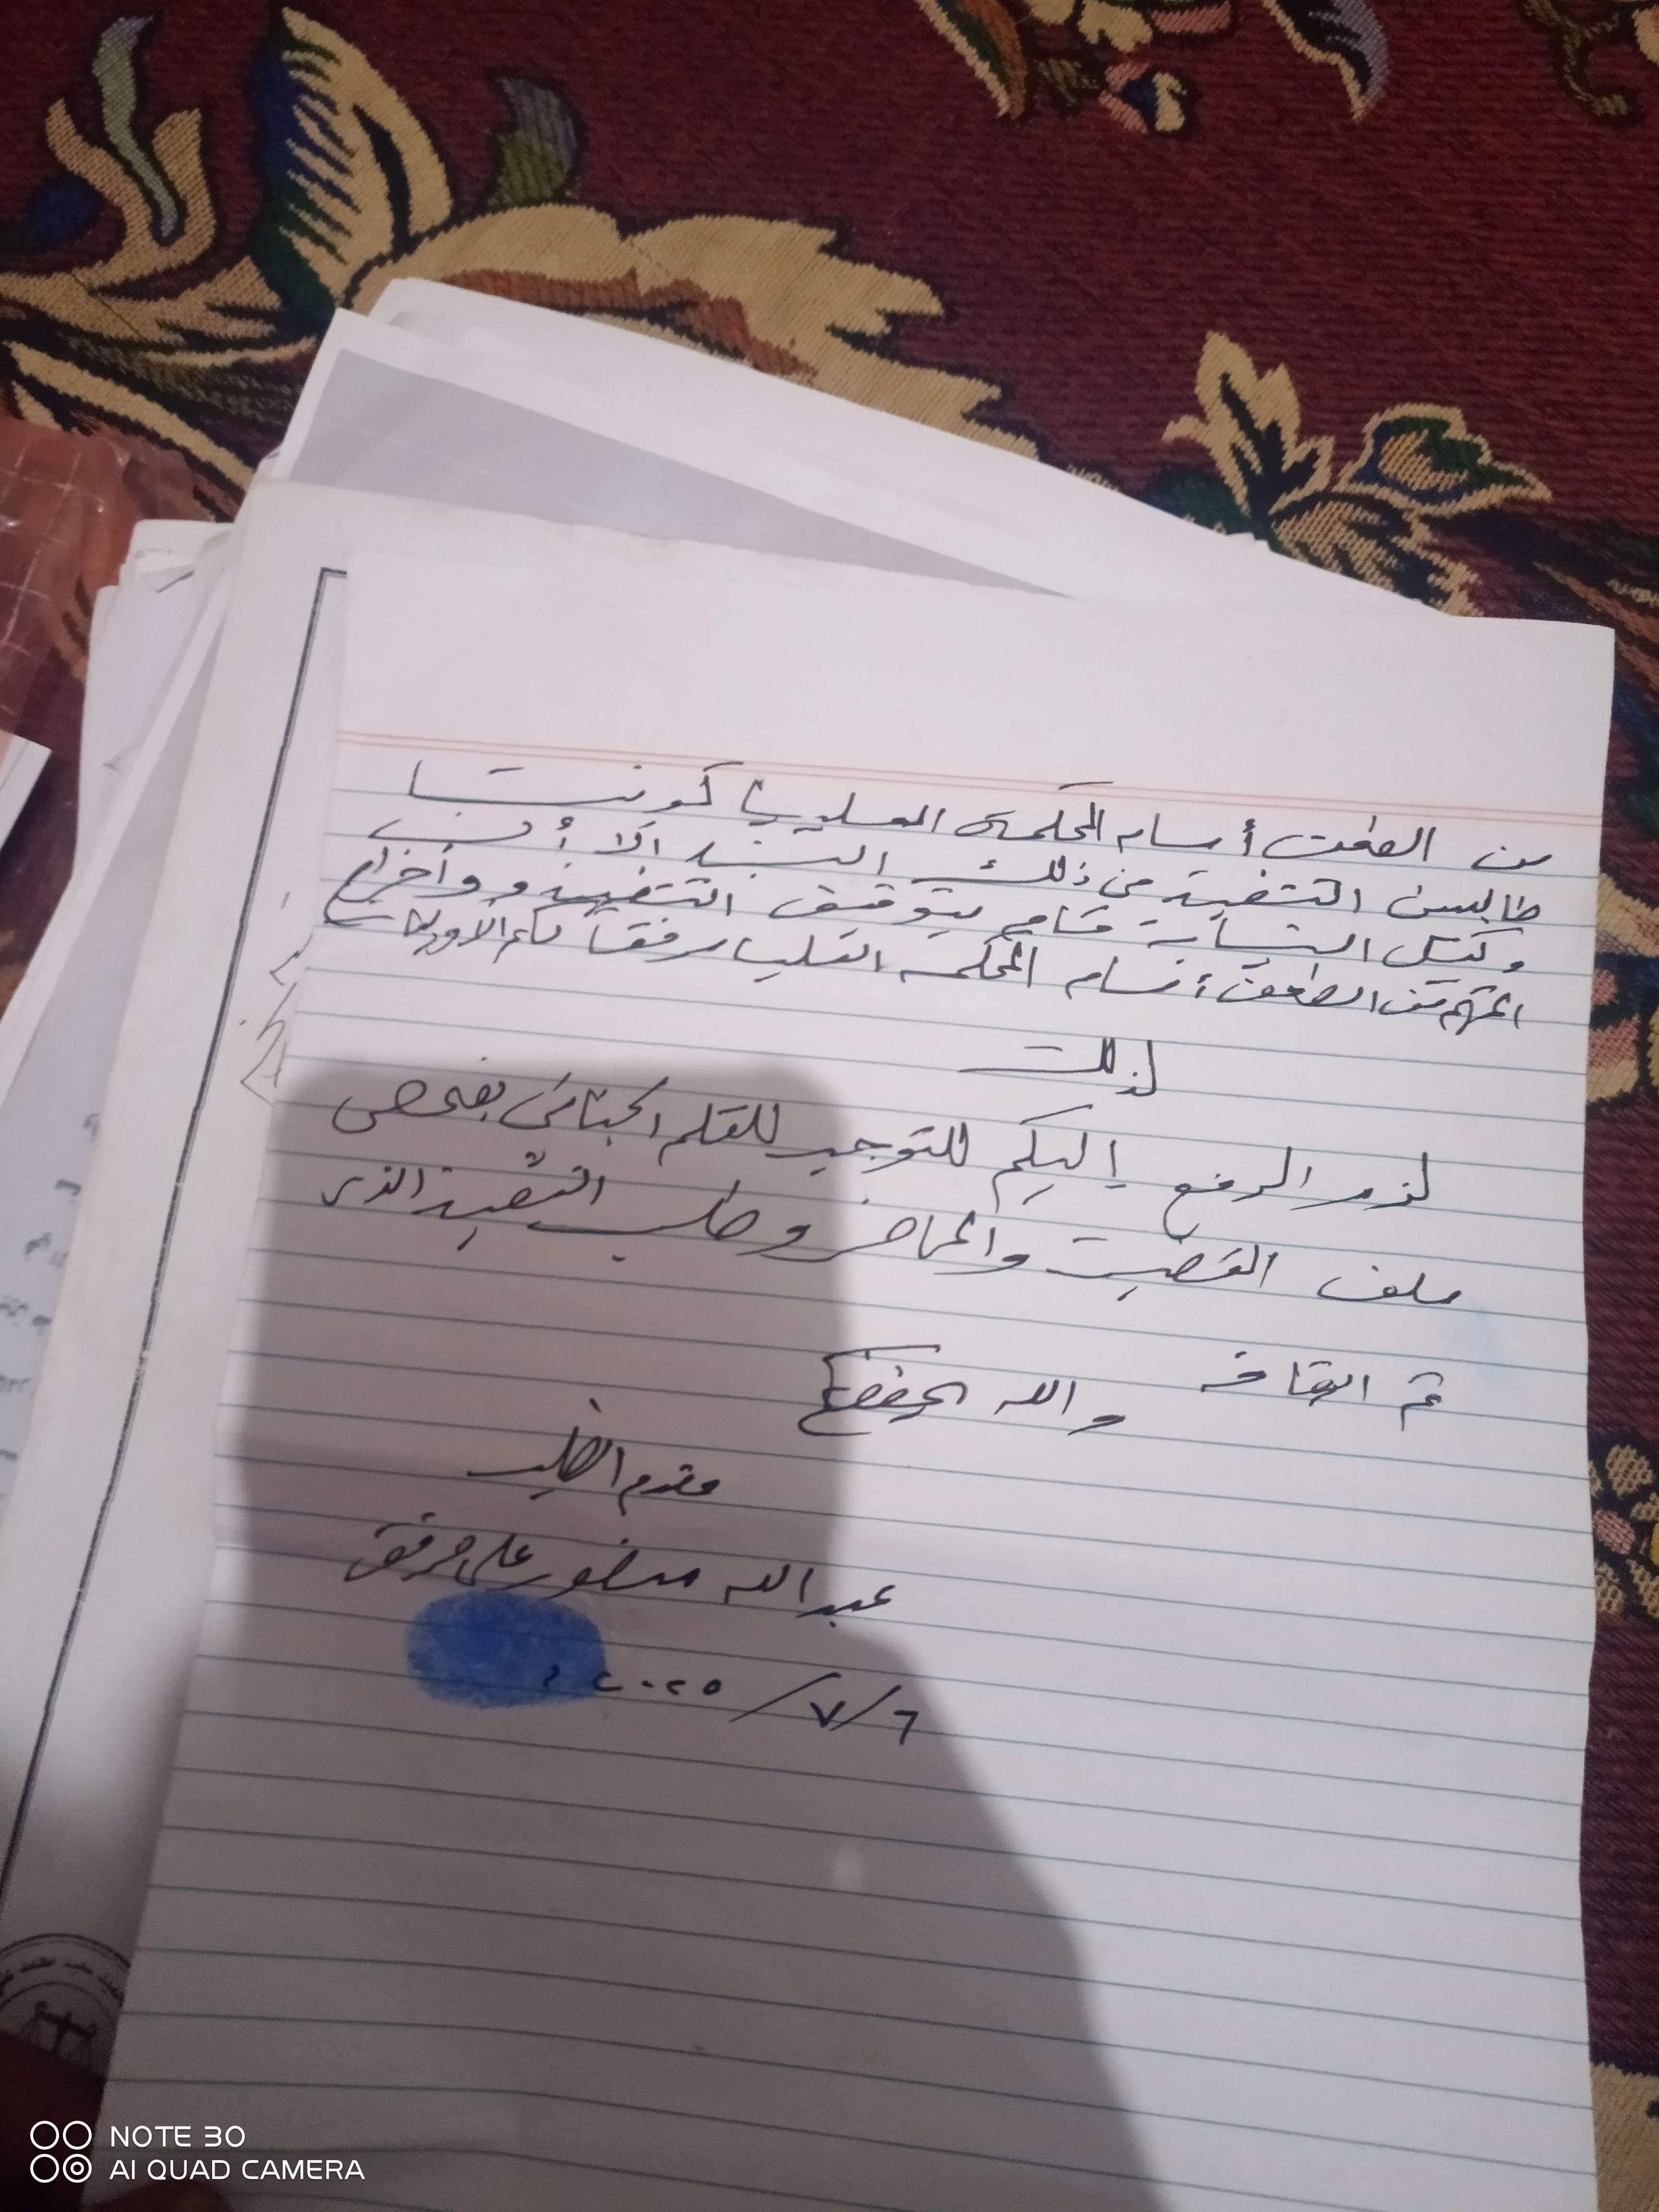 من الطعن أمام المحكمة العليا كوننا
طالبين التنفيذ من ذلك البند الا أن
وكيل النيابة قام بتوقيف التنفيذ و واخراج
المتهم من الطعن أمام المحكمة العليا مرفقا لكم الأوليات
لذلك
لزم الرفع إليكم للتوجيه للقلم الجنائي بفحص
ملف القضية والمحاضر وطلب التنفيذ الذي
تم ايقافه والله يحفظكم
مقدم الطلب
عبدالله منصور علي مرفق
٦/٧/٢٠٢٥م
NOTE 30
AI QUAD CAMERA